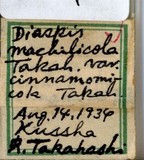 Diaspis
machilicola
Takah. var.
cinnamomi-
cola Takah.
Aug. 14, 1934
Kussha
R. Takahashi